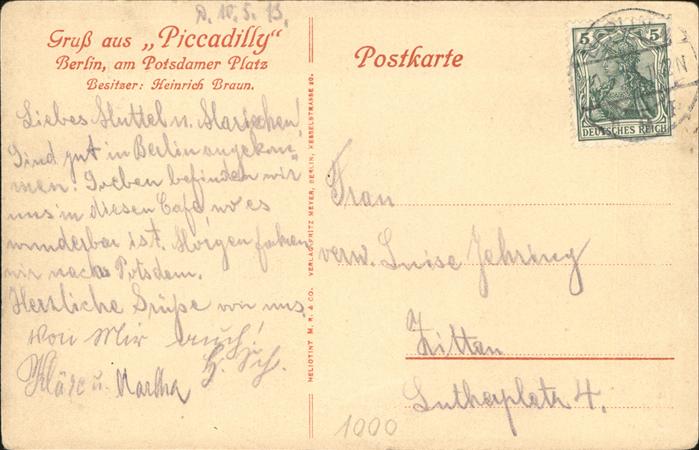 D. 10. 5. 13.
Gruß aus „Piccadilly“
Berlin, am Potsdamer Platz
Besitzer: Heinrich Braun.
Liebes Muttel u. Mariechen!
Sind gut in Berlin angekom=
men! Soeben befinden wir
uns in diesen Café, wo es
wunderbar ist. Morgen fahren
wir nach Potsdam.
Herzliche Grüße von uns
Von Mir auch!
H. Sch.
Kläre u. Martha
HELIOTINT M. R. & CO. VERLAG FRITZ MEYER, BERLIN, KESSELSTRASSE 20.
Postkarte
5 5
DEUTSCHES REICH
Frau
verw. Luise Jehring
Zittau
Lutherplatz 4.
1000